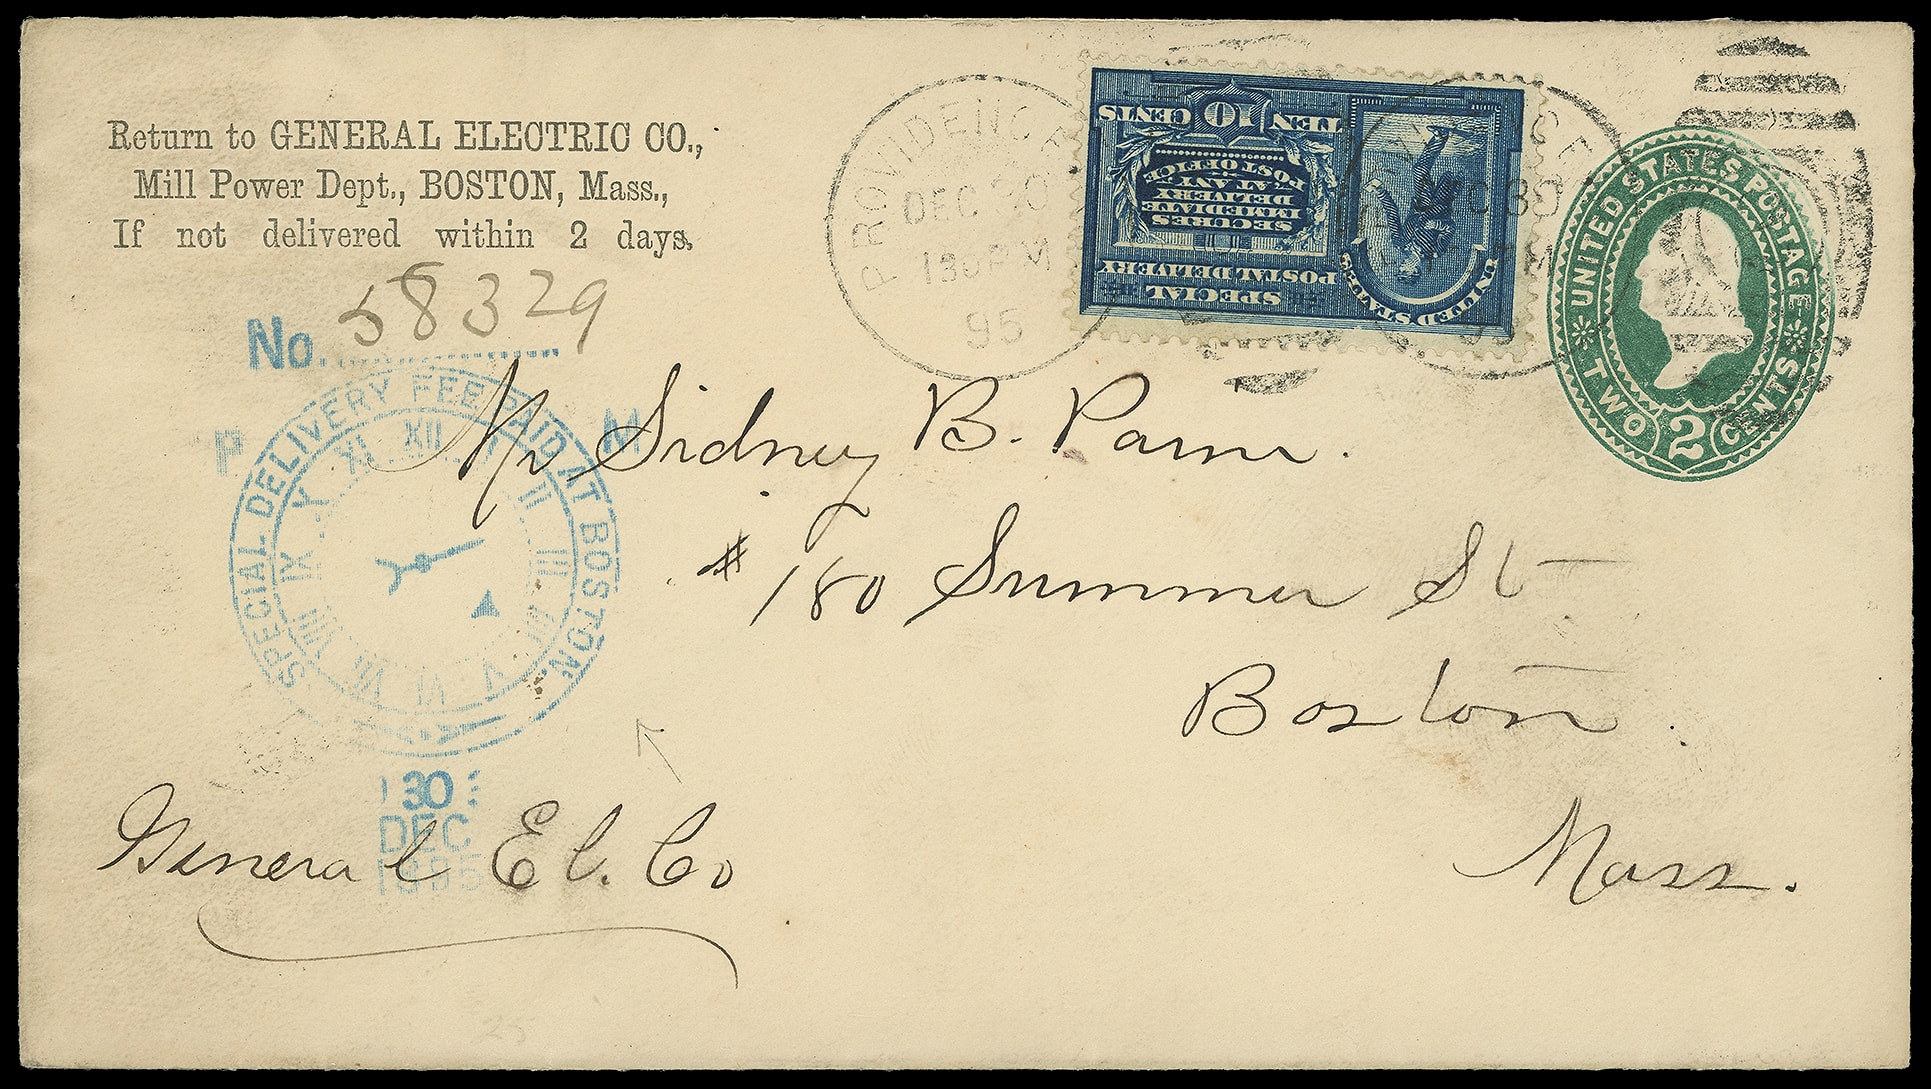 Return to GENERAL ELECTRIC CO.,
Mill Power Dept., BOSTON, Mass.,
If not delivered within 2 days.
PROVIDENCE
DEC 30
130PM
95
TEN 10 CENTS
SECURES
IMMEDIATE
DELIVERY
AT ANY
POST OFFICE
SPECIAL
POSTAL DELIVERY
UNITED STATES
DEC 30
UNITED STATES POSTAGE
TWO 2 CENTS
No. 58329
P M
SPECIAL DELIVERY FEE PAID AT BOSTON.
XII I II III IIII V VI VII VIII IX X XI
30
DEC
1895
Mr Sidney B. Paine.
# 180 Summer St
Boston.
Mass.
General El. Co
25